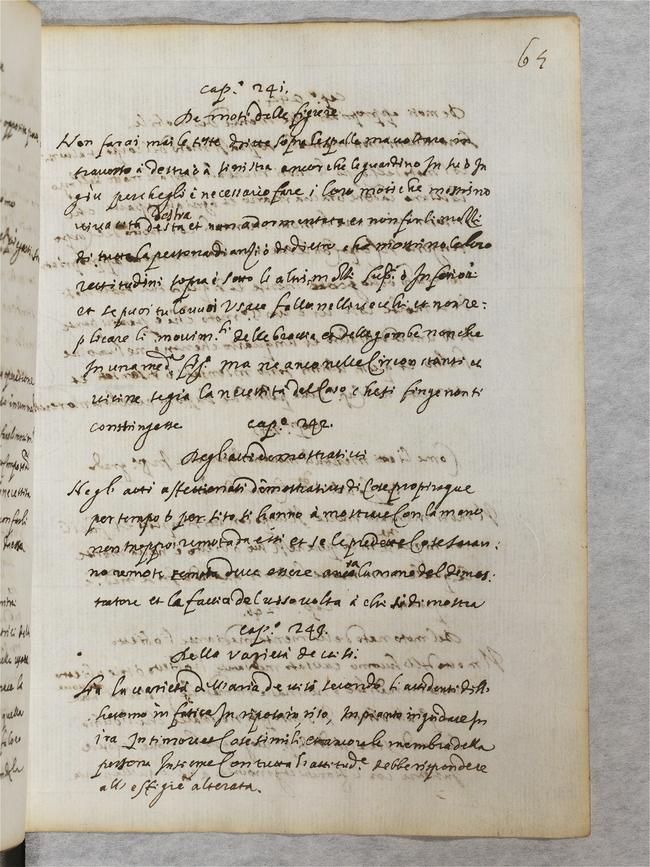 64
cap.° 241.
De moti delle figure
Non farai mai le teste dritte sopra le spalle ma voltate in
traverso à destra ò à sinistra ancor che le guardino In su ò In
giù perche gli è necessario fare i loro moti che mostrino
vivacità desta et non adormentata et non far li mezzi
di tutta la persona dianzi ò dedietro che mostrino le loro
rettitudini sopra ò sotto li altri mezzi sup.ri ò Inferiori
et se pur tu lo vuoi usare fallo nelli vecchi et non re-
plicare li movim.ti delle braccia ò delle gambe non che
In una med.a fig.a ma ne anco nelle Circonstanti et
vicine se già la necessità del Caso che si finge non ti
constringesse
cap.° 242.
Degli atti dimostrativi
Negli atti affettionati dimostrativi di Cose propinque
per tempo ò per sito si hanno à mostrare Con la mano
non troppo remota da essi et se le predette Cose saran-
no remote deve essere ancora la mano del dimos-
tratore et la faccia del viso volta à chi si dimostra
cap.° 243.
Della varietà de visi
Sia la varietà d'aria de visi secondo li accidenti dell-
huomo in fatica In riposo in riso, In pianto in gridare In
ira In timore et Cose simili, et ancora le membra della
persona Insieme Con tutta l'attitud.e debbe rispondere
all'effigie alterata.